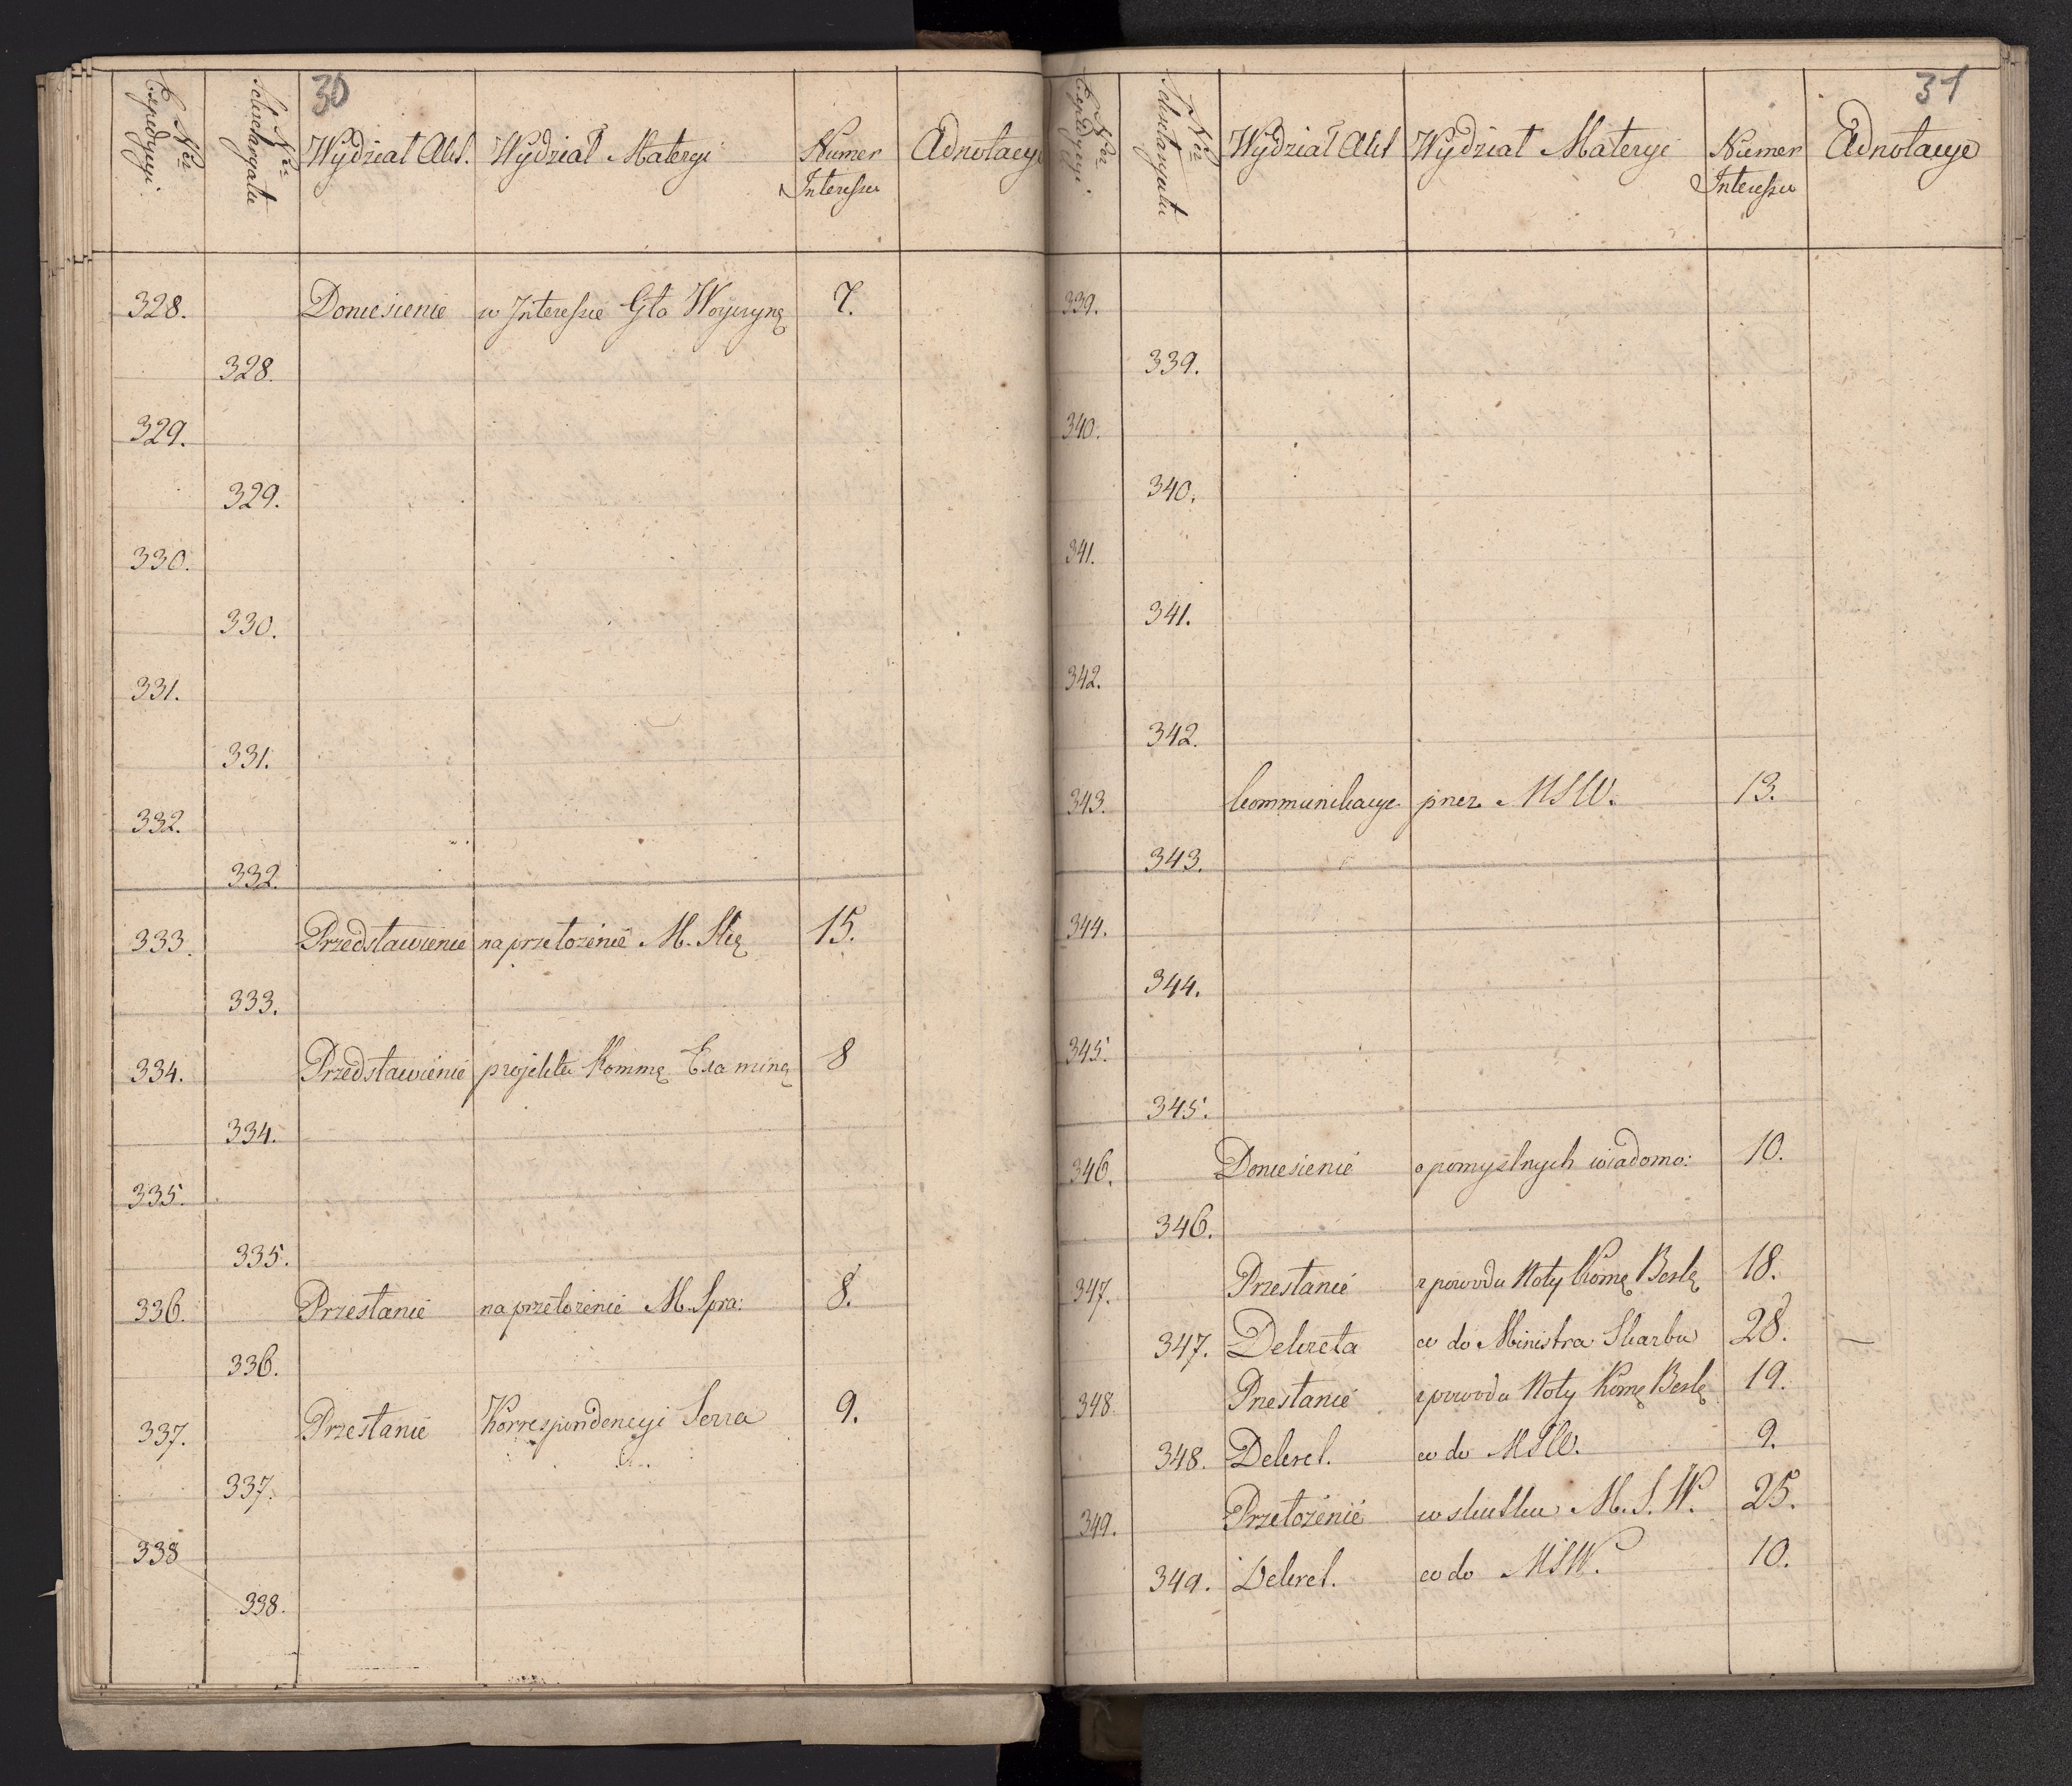 30
Nr Expedycyi.
Nr Selectargatu
Wydział Akt.
Wydział Materyi
Numer Interessu
Adnotacye
328. Doniesienie w Interessie Gła Woyczyną 7.
328.
329.
329.
330.
330.
331.
331.
332.
332.
333. Przedstawienie na przełożenie M. Skę 15.
333.
334. Przedstawienie projektu Kommę Examiną 8
334.
335.
335.
336. Przesłanie na przełożenie M. Spra: 8.
336.
337. Przesłanie Korrespondencyi Serra 9.
337.
338
338.
31
Nr Expedycyi.
Nr
Wydział Akt
Wydział Materyi
Numer Interessu
Adnotacye
339.
339.
340.
340.
341.
341.
342.
342.
343. Kommunikacye przez MSW. 13.
343.
344.
344.
345.
345.
346. Doniesienie o pomyślnych wiadomo: 10.
346.
347. Przesłanie z powodu Noty Komę 18.
347. Dekreta co do Ministra Skarbu 28. —
348. Przesłanie z powodu Noty Komę 19.
348. Dekret. co do MSW. 9.
349. Przełożenie w skutku M. S. W. 25.
349. Dekret. co do MSW. 10.